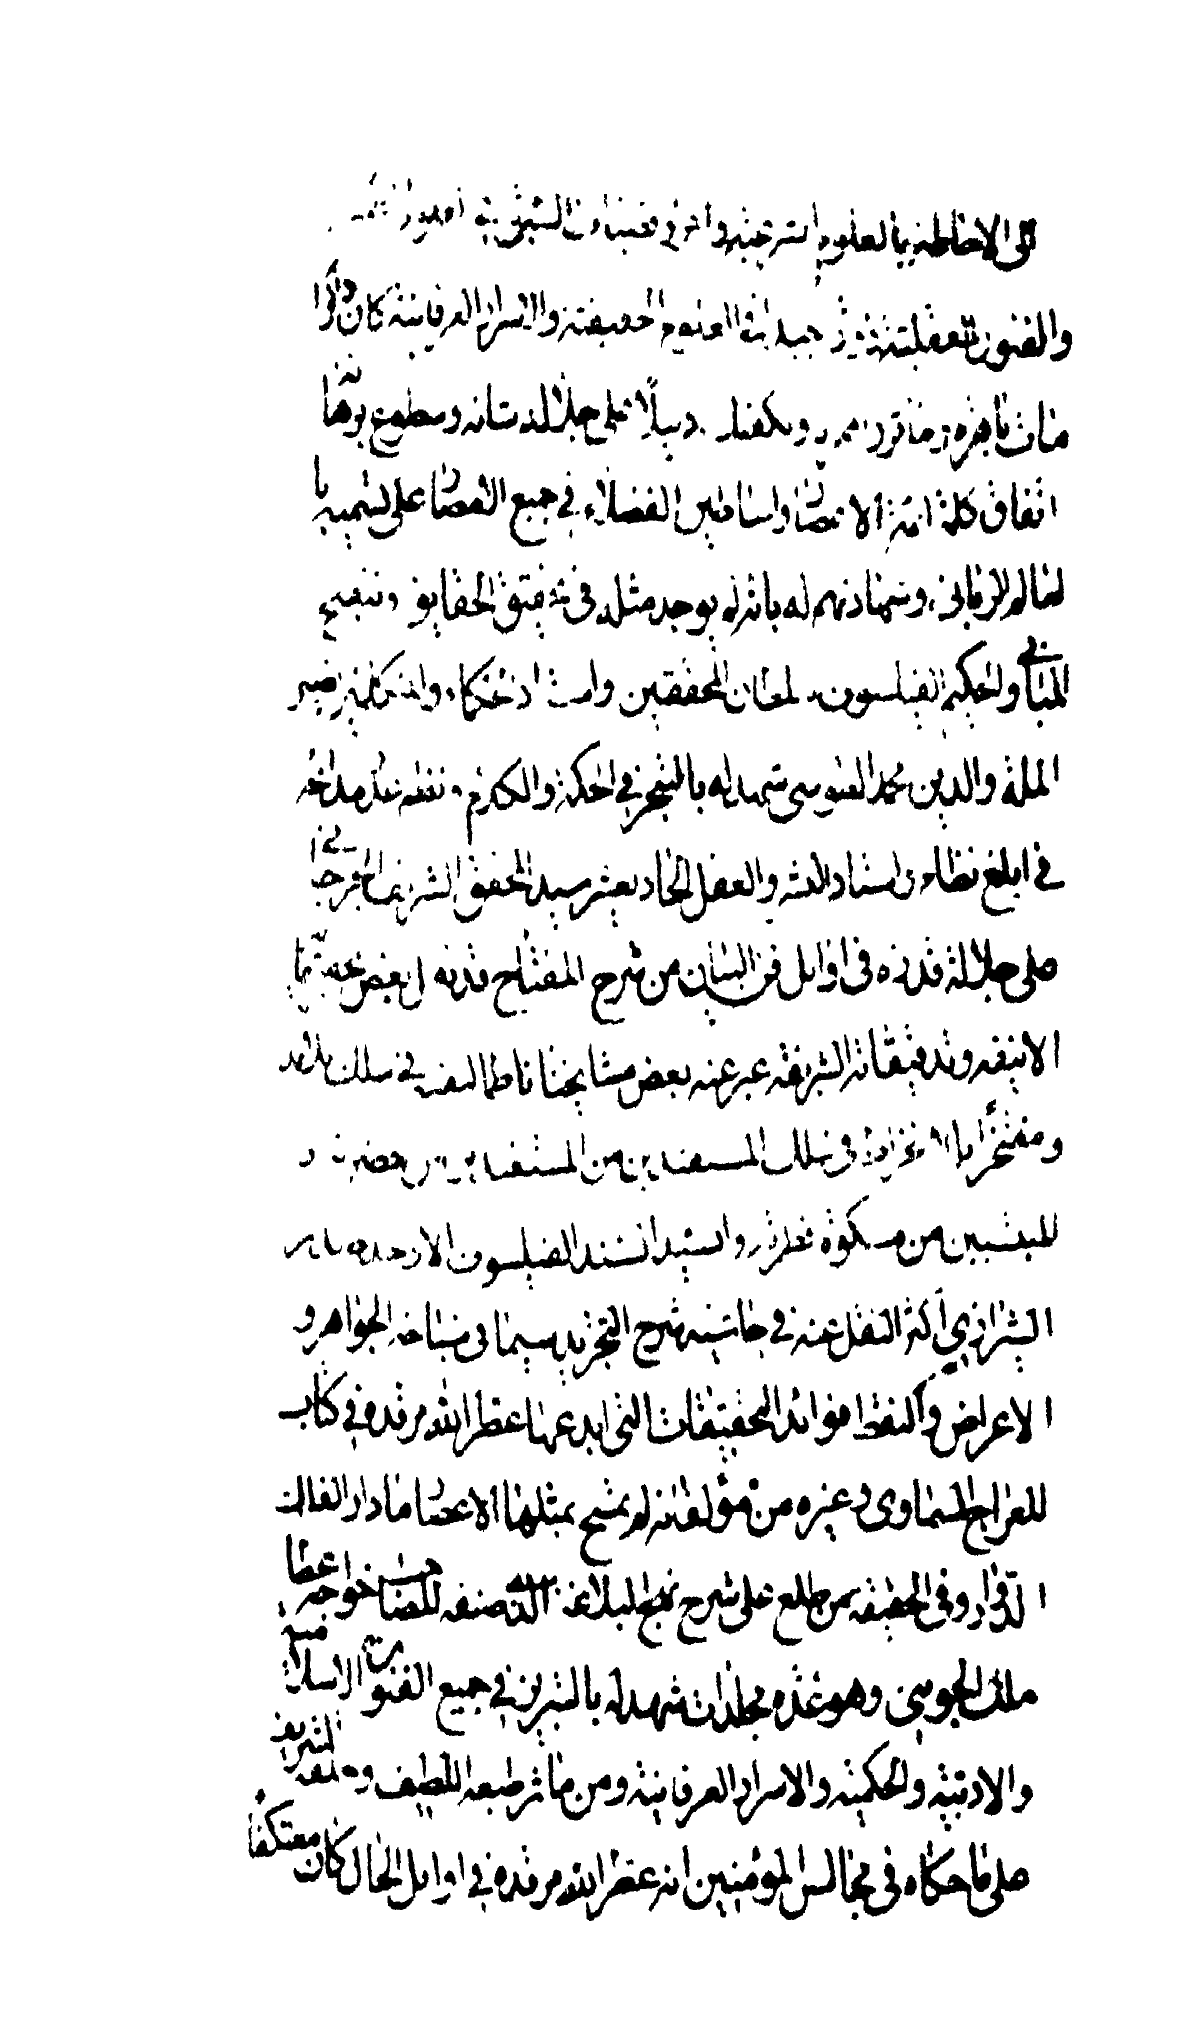 الى الاحاطة بالعلوم الشرعية واحرز قصبات السبق في
والفنون العقلية ذكرا كان العلوم الحقيقية والاسرار العرفانية
مات باهرة ومآثر ويكفيك دليلا على جلالة شانه وسطوع برهانه
اتفاق كلمة ائمة الاعصار واساطين الفضلاء في جميع الامصار على تسميته با
لعالم الرباني وشهادتهم له بانه لم يوجد مثله في تحقيق الحقايق وتنقيح
المباني والحكيم الفيلسوف سلطان المحققين واستاد الحكماء والمتكلمين نصير
الملة والدين محمد الطوسي شهد له بالتبحر في الحكمة والكلام ونظم غرر مدائحه
في ابلغ نظام واستاد البشر والعقل الحادي عشر سيد المحققين الشريف الجرجاني
على جلالة قدره في اوايل فن البيان من شرح المفتاح قد نقل بعض تحقيقاته
الانيقة وتدقيقاته الشريفة عبر عنه ببعض مشايخنا ناظما نفسه في سلك تلامذته
ومفتخرا بالانخراط في سلك المستفيدين من حضرته
المقتبسين من مشكوة فطرته والسيد السند الفيلسوف الاوحد مير
الشيرازي اكثر النقل عنه في حاشية شرح التجريد سيما في مباحث الجواهر و
الاعراض والتقط فوائد التحقيقات التي ابدعها عطر الله مرقده في كتاب
المعراج السماوي وغيره من مؤلفاته لم يسمح بمثلها الاعصار ما دار الفلك
الدوار وفي الحقيقة من اطلع على شرح نهج البلاغة الذي صنفه للصاحب خواجه عطا
ملك الجويني وهو عدة مجلدات شهد له بالتبريز في جميع الفنون الاسلامية
والادبية والحكمية والاسرار العرفانية ومن مآثر طبعه اللطيف وخلقه الشريف
على ما حكاه في مجالس المؤمنين انه عطر الله مرقده في اوايل الحال كان معتكفا